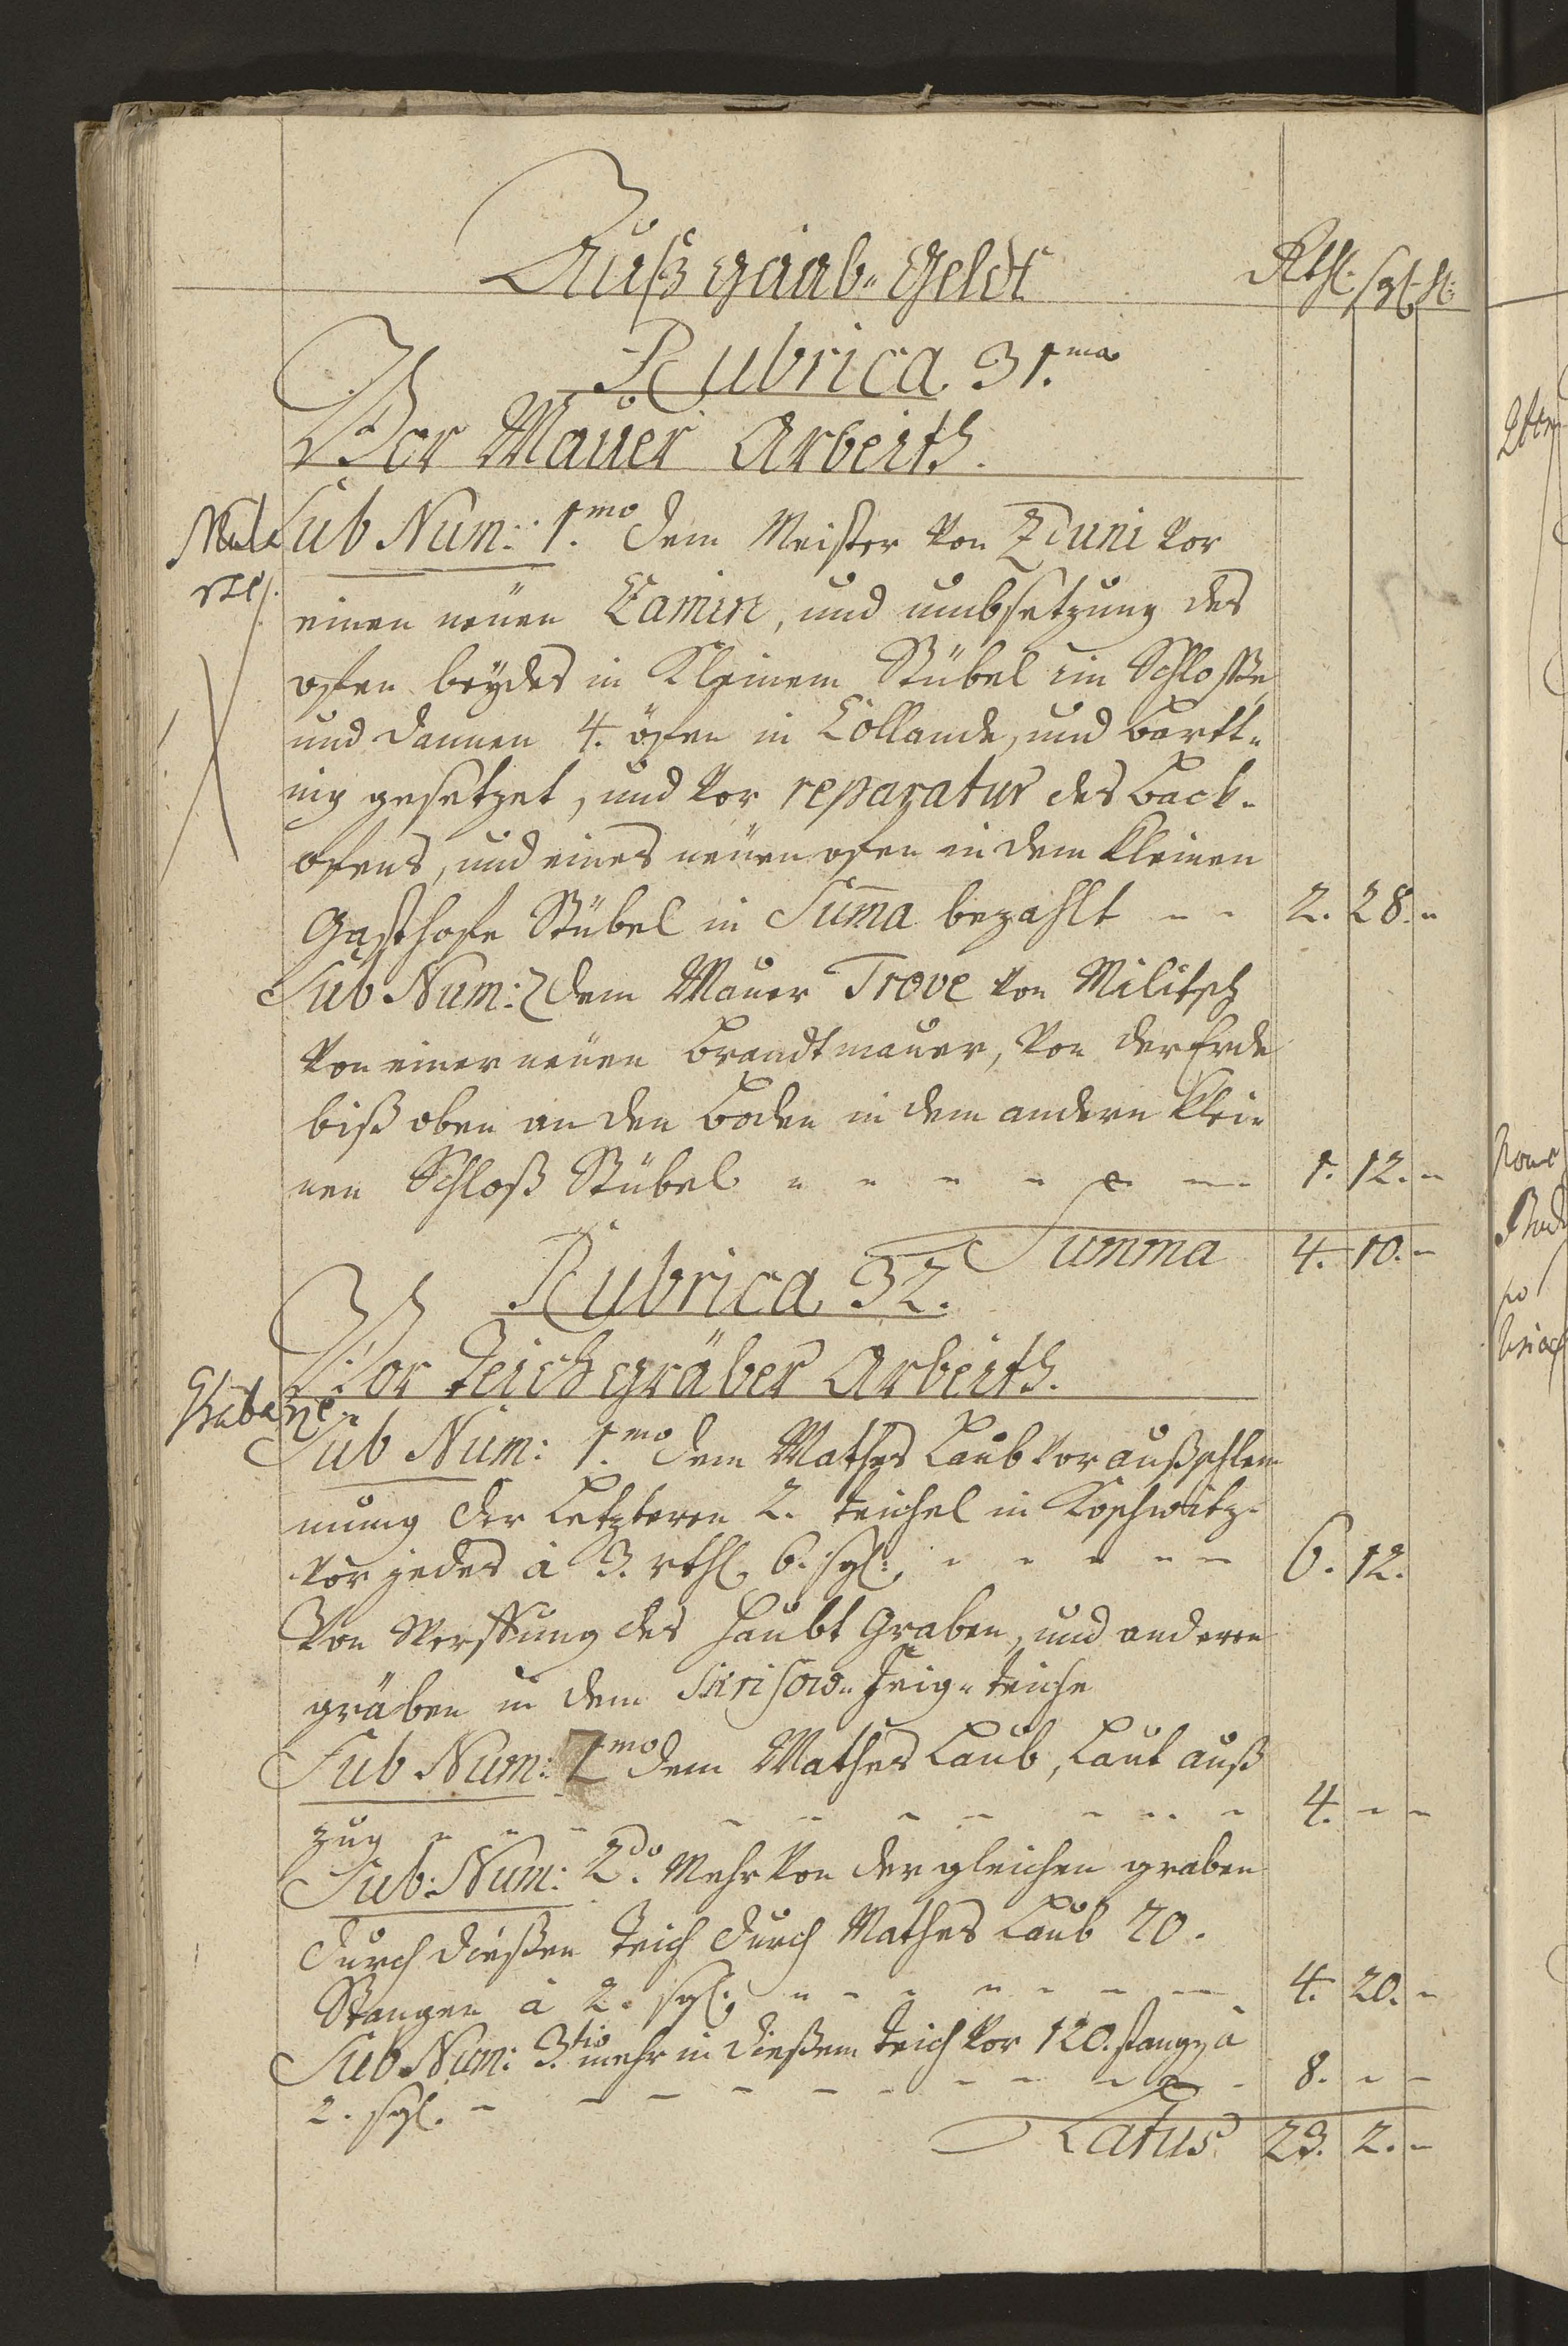 Auß gaab-Geldt
Rthl. sgl. hl.
Rubrica 31.ma
Vor Mauer Arbeith.
Sub Num: 1.mo dem Meister von Zduni vor
einen neüen Camin, und umbsetzung des
ofen beydes in Kleinem Stübel im Schlosse
und dannen 4. öfen in Collande, und Bartt-
nig gesetzet, und vor reparatur des Back-
ofens, und eines neüen ofen in dem kleinen
Gasthofe Stübel in Suma bezahlt - - 2. 28. -
Sub Num: 2 dem Mauer Trove von Militsch
von einer neüen Brandtmauer, von der Erde
biß oben an den Boden in dem andern klei-
nen Schloß Stübel - - - - - - 1. 12. -
Summa 4. 10. -
Rubrica 32.
Vor Teichgräber Arbeith.
Sub Num: 1.mo dem Mathes Laub vor außschlem-
mung der Letzteren 2. teichel in Koschwitz-
vor jedes à 3. rthl. 6. sgl. - - - - - 6. 12.
Von des Haubt Graben, und anderen
gräben in dem teiche
Sub Num: 1mo dem Mathes Laub, Laut auß
zug - - - - - - - - - 4. - -
Sub: Num: 2do. Mehr von der gleichen graben
durch dießen Teich durch Mathes Laub 70.
Stangen à 2. sgl. - - - - - - - 4. 20. -
Sub Num: 3.tio mehr in dießem teich vor 120. stangen à
2. sgl. - - - - - - - - - - 8. - -
Latus 23. 2. -